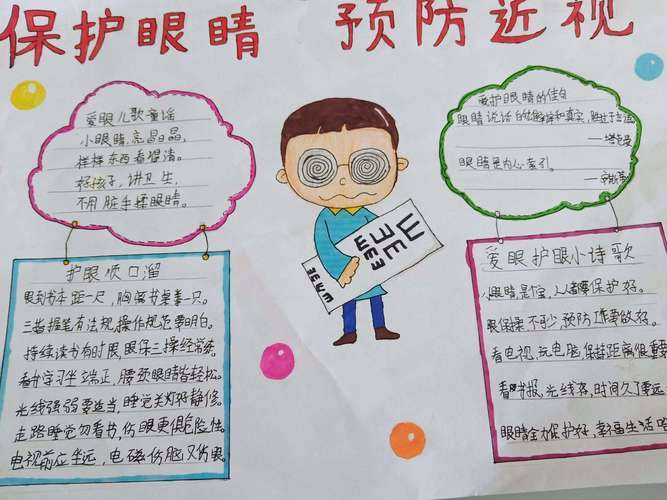 保护眼睛 预防近视
爱眼儿歌童谣
小眼睛,亮晶晶,
样样东西看望清。
好孩子,讲卫生,
不用脏手揉眼睛。
爱护眼睛的佳句
眼睛说话的
和真实,胜过于言语
眼睛是内心索引。
护眼顺口溜
眼到书本距一尺,胸离书桌要一只。
三指握笔有法规,操作规范要明白。
持续读书有时限,眼保三操经常练。
看书学习坐端正,腰颈眼睛皆轻松。
光线强弱要适当,睡觉关灯好静修。
走路睡觉勿看书,伤眼更俱危险性。
电视前应坐远,电磁伤脑又伤眼。
爱眼护眼小诗歌
小眼睛,是宝,人人都要保护好。
眼保操,不可少,预防工作要做好。
看电视,玩电脑,保持距离很重要
看书报,光线好,时间久了要远
眼睛全力保护好,幸福生活
E E E